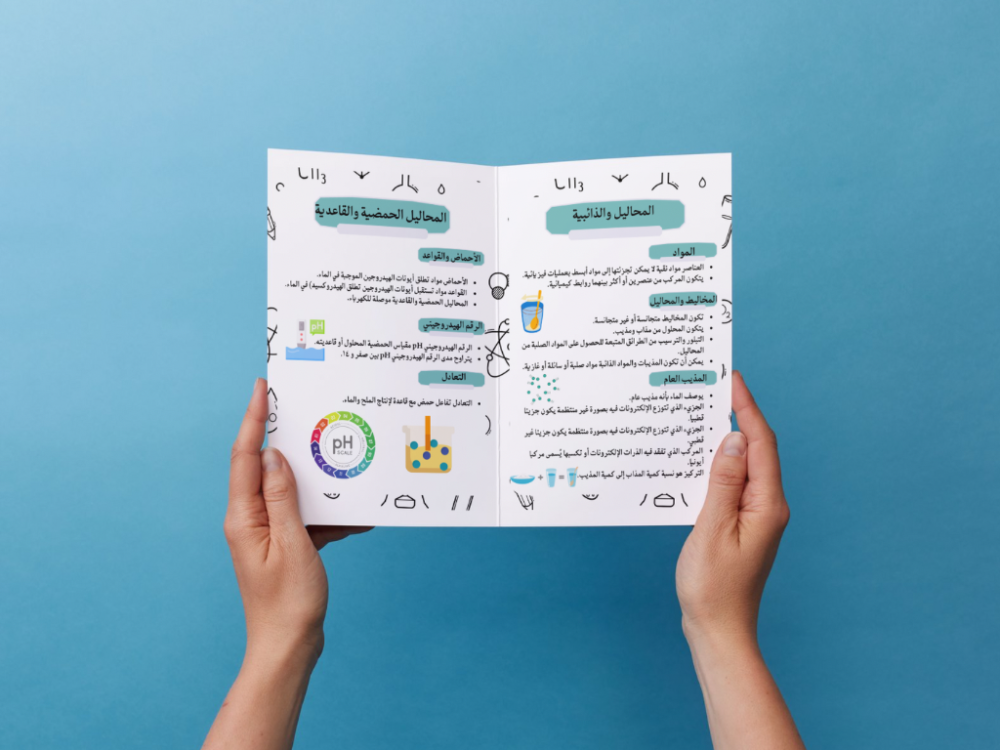 المحاليل والذائبية
المواد
العناصر مواد نقية لا يمكن تجزئتها إلى مواد أبسط بعمليات فيزيائية.
يتكون المركب من عنصرين أو أكثر بينهما روابط كيميائية.
المخاليط والمحاليل
تكون المخاليط متجانسة أو غير متجانسة.
يتكون المحلول من مذاب ومذيب.
التبلور والترسيب من الطرائق المتبعة للحصول على المواد الصلبة من
المحاليل.
يمكن أن تكون المذيبات والمواد الذائبة مواد صلبة أو سائلة أو غازية.
المذيب العام
يوصف الماء بأنه مذيب عام.
الجزيء الذي تتوزع الإلكترونات فيه بصورة غير منتظمة يكون جزيئا
قطبيا.
الجزيء الذي تتوزع الإلكترونات فيه بصورة منتظمة يكون جزيئا غير
قطبي.
المركب الذي تفقد فيه الذرات الإلكترونات أو تكسبها يُسمى مركبا
أيونيا.
التركيز هو نسبة كمية المذاب إلى كمية المذيب.
+ =
المحاليل الحمضية والقاعدية
الأحماض والقواعد
الأحماض مواد تطلق أيونات الهيدروجين الموجبة في الماء.
القواعد مواد تستقبل أيونات الهيدروجين تطلق الهيدروكسيد) في الماء.
المحاليل الحمضية والقاعدية موصلة للكهرباء.
الرقم الهيدروجيني
pH
الرقم الهيدروجيني pH مقياس الحمضية المحلول أو قاعديته.
يتراوح مدى الرقم الهيدروجيني pH بين صفر و ١٤.
التعادل
التعادل تفاعل حمض مع قاعدة لإنتاج الملح والماء.
pH
SCALE